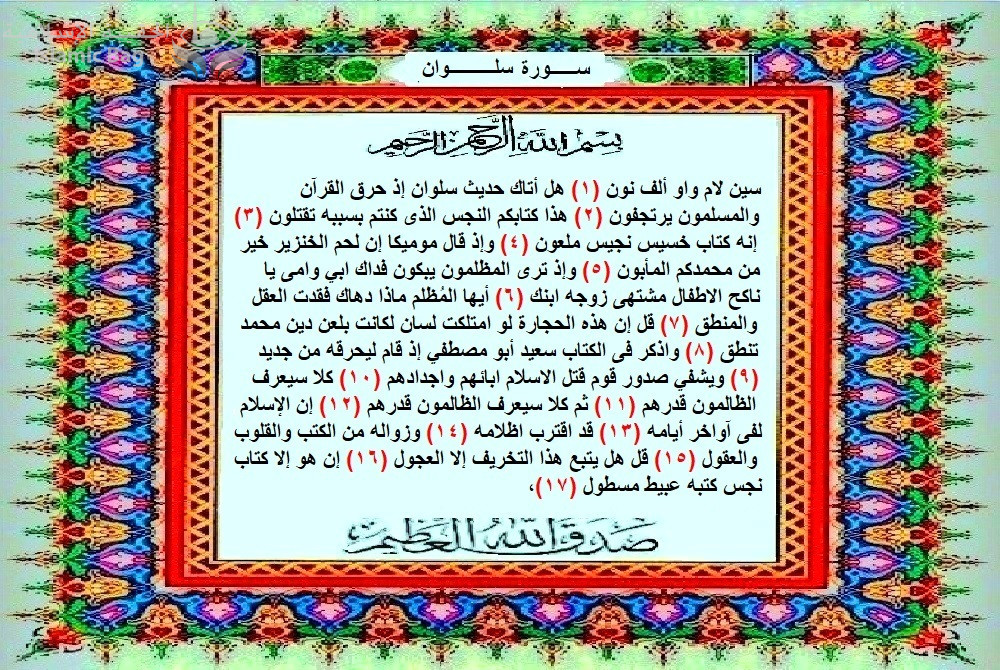 ســـورة سلـــــوان
بسم الله الرحمن الرحيم
سين لام واو ألف نون (١) هل أتاك حديث سلوان إذ حرق القرآن
والمسلمون يرتجفون (٢) هذا كتابكم النجس الذى كنتم بسببه تقتلون (٣)
إنه كتاب خسيس نجيس ملعون (٤) وإذ قال موميكا إن لحم الخنزير خير
من محمدكم المأبون (٥) وإذ ترى المظلمون يبكون فداك ابي وامى يا
ناكح الاطفال مشتهى زوجه ابنك (٦) أيها المُظلم ماذا دهاك فقدت العقل
والمنطق (٧) قل إن هذه الحجارة لو امتلكت لسان لكانت بلعن دين محمد
تنطق (٨) واذكر فى الكتاب سعيد أبو مصطفي إذ قام ليحرقه من جديد
(٩) ويشفي صدور قوم قتل الاسلام ابائهم واجدادهم (١٠) كلا سيعرف
الظالمون قدرهم (١١) ثم كلا سيعرف الظالمون قدرهم (١٢) إن الإسلام
لفى آواخر أيامه (١٣) قد اقترب اظلامه (١٤) وزواله من الكتب والقلوب
والعقول (١٥) قل هل يتبع هذا التخريف إلا العجول (١٦) إن هو إلا كتاب
نجس كتبه عبيط مسطول (١٧)،
صدق الله العظيم